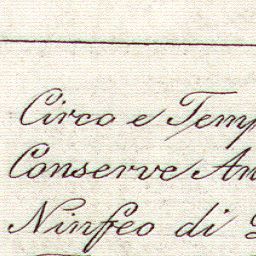 Circo e Temp
Conserve An
Ninfeo di